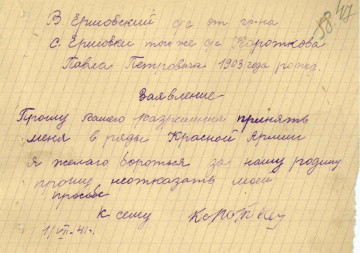 58 47
В Ершовский с/с от гр-на
с. Ершовки того же с/с Короткова
Павла Петровича 1903 года рожд.
Заявление
Прошу вашего разрешения принять
меня в ряды Красной Армии
я желаю бороться за нашу родину
прошу неотказать моей
просьбе
К сему Коротков
1/VII-41 г.